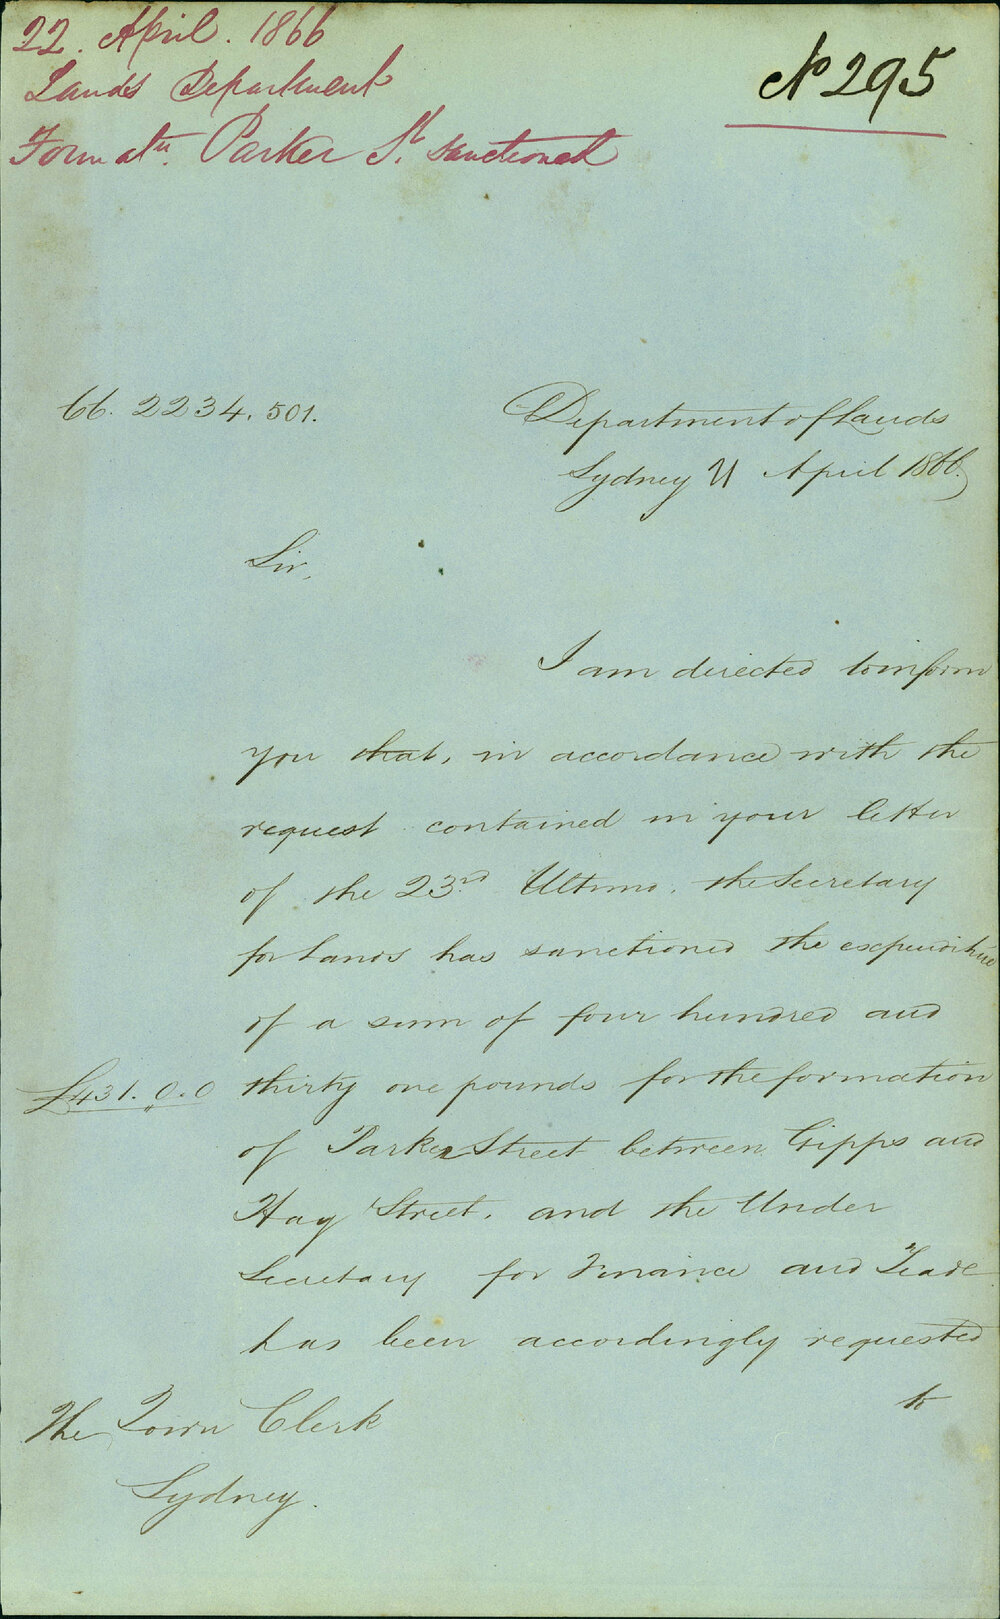 22. April. 1866
Lands Department
Formatn. Parker St. sanctioned
No 295
66. 2234. 501.
Department of Lands
Sydney 21 April 1866.
Sir,
I am directed to inform
you that, in accordance with the
request contained in your letter
of the 23rd Ultimo, the Secretary
for Lands has sanctioned the expenditure
of a sum of four hundred and
£431. 0. 0 thirty one pounds for the formation
of Parker Street between Gipps and
Hay Street, and the Under
Secretary for Finance and Trade
has been accordingly requested
to
The Town Clerk
Sydney.